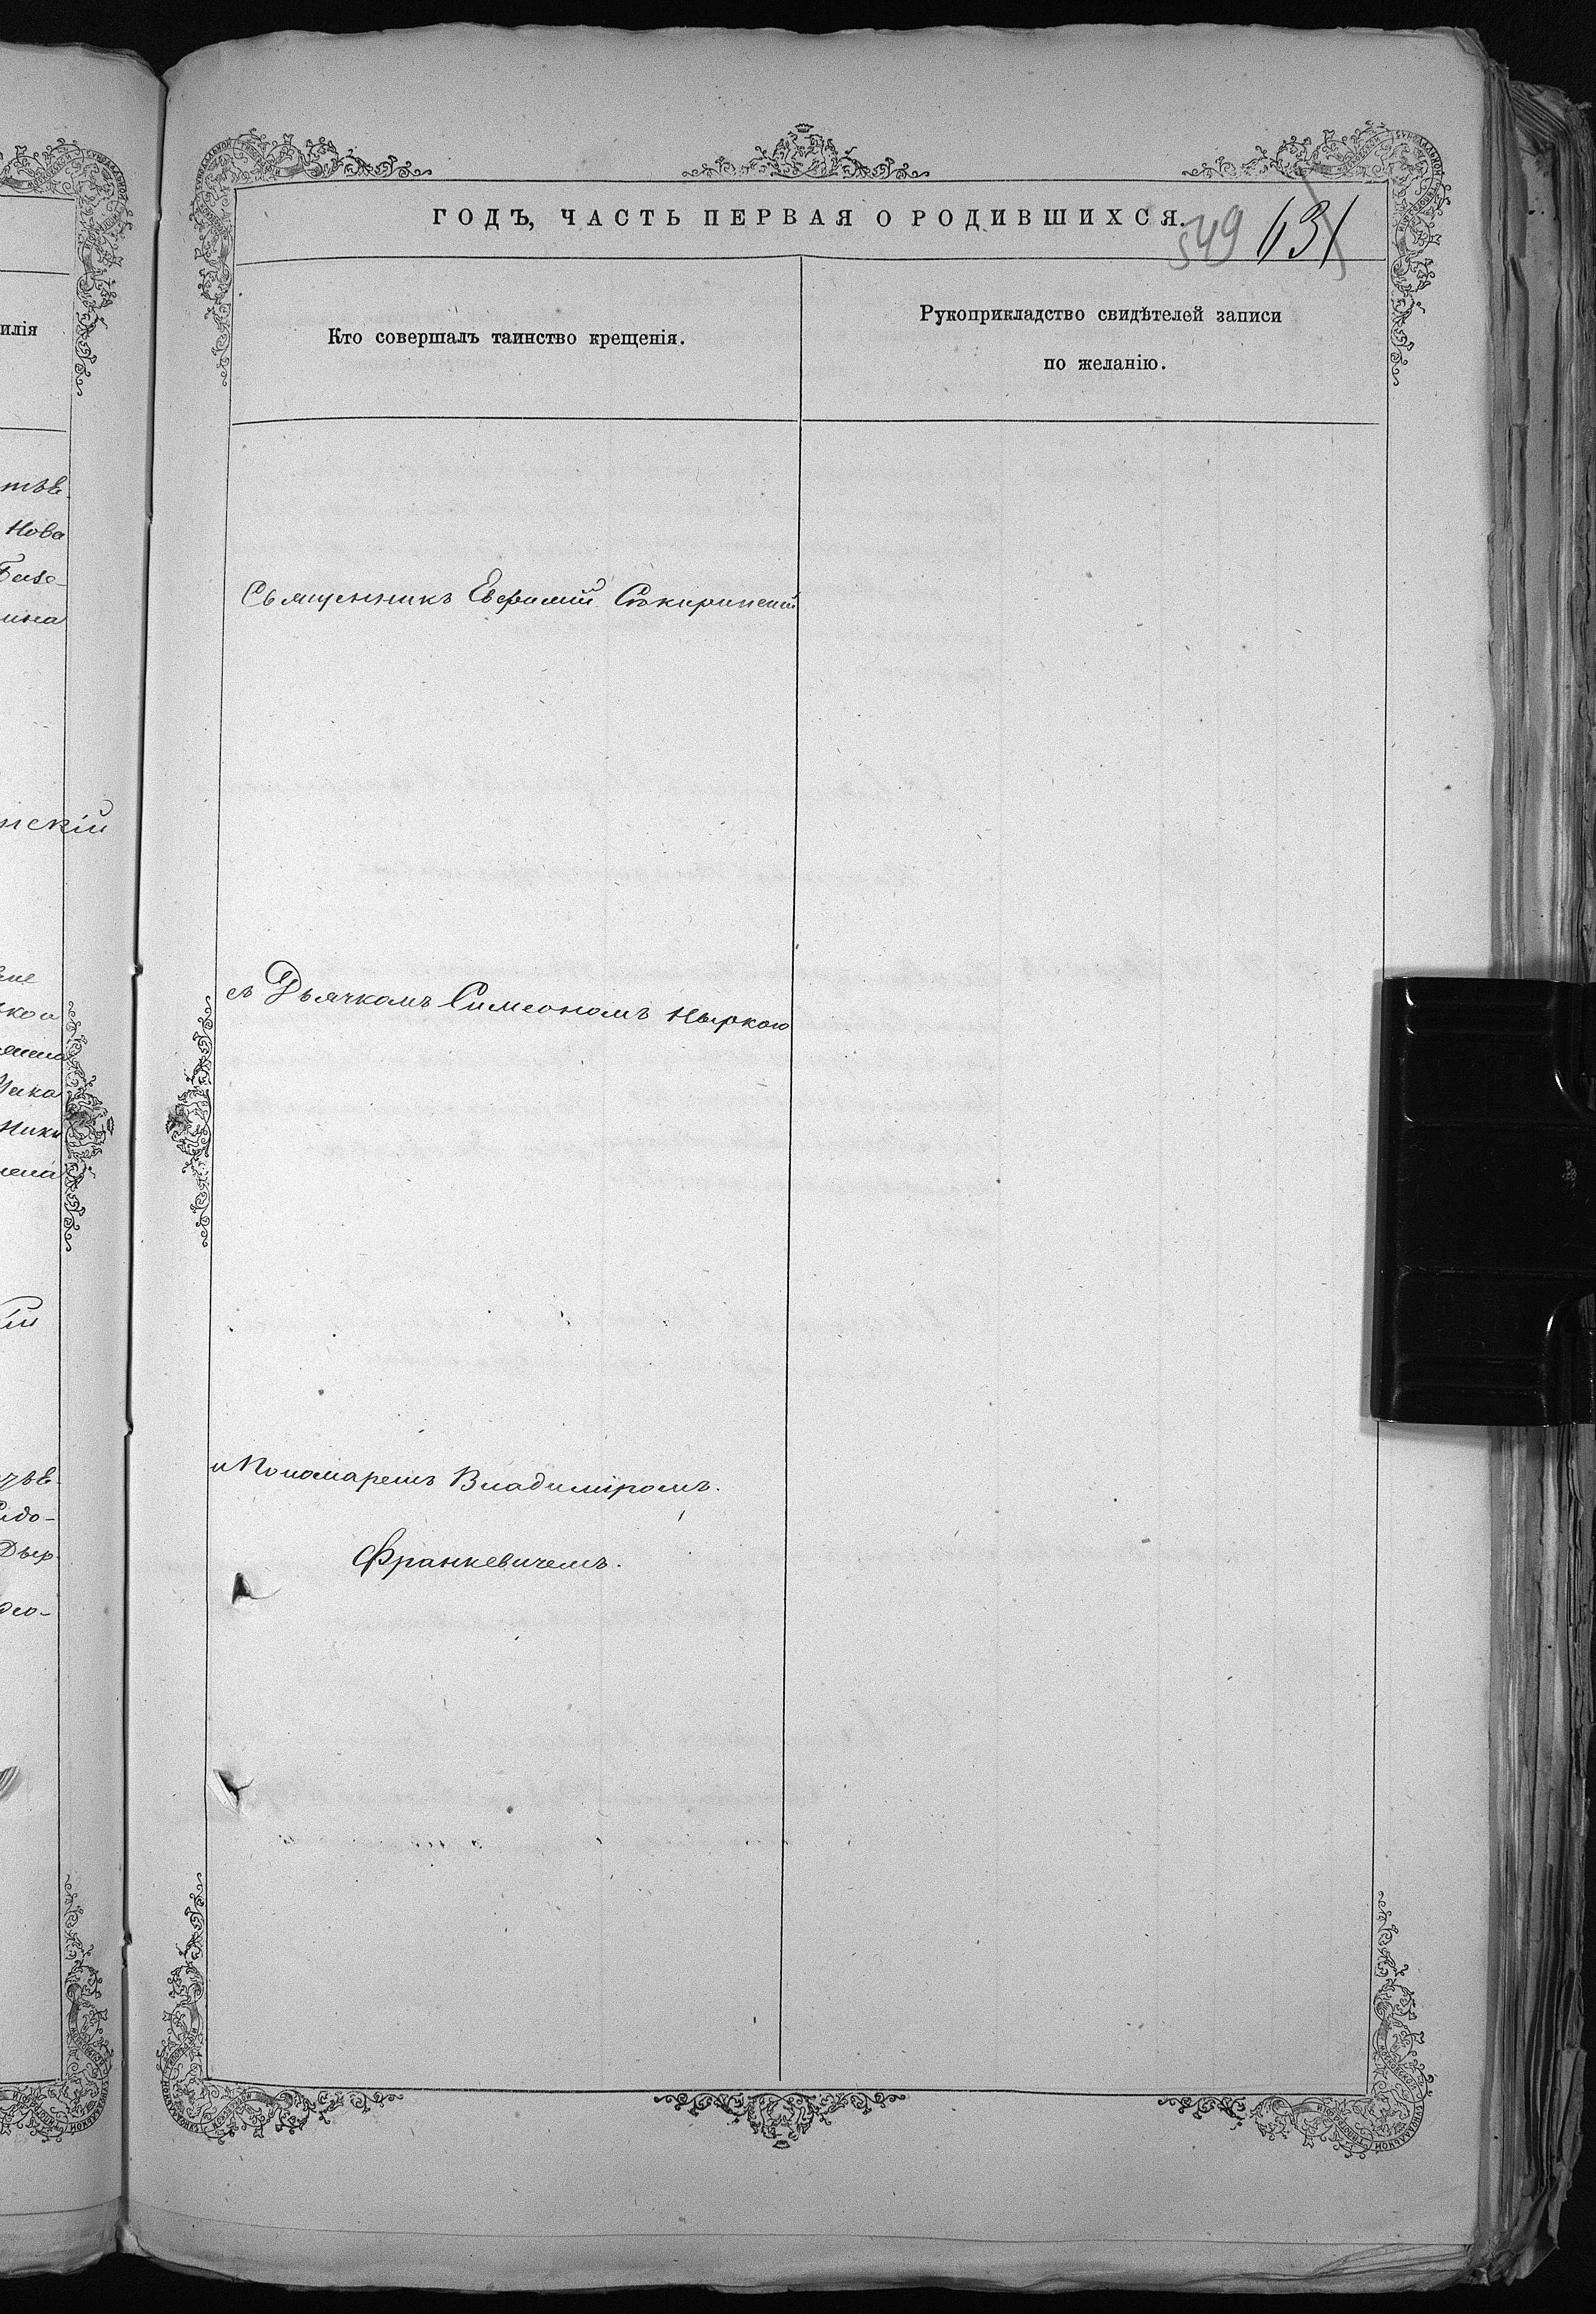 ГОДЪ, ЧАСТЬ ПЕРВАЯ О РОДИВШИХСЯ.
549 131
Кто совершалъ таинство крещенія.
Рукоприкладство свидѣтелей записи
по желанію.
Священникъ Евфимій Сѣкиринскій
съ Дьячкомъ Симеономъ Ныркою
и Пономаремъ Владиміромъ.
Франкевичемъ.
илія
тѣв
Нова
ина
нскій